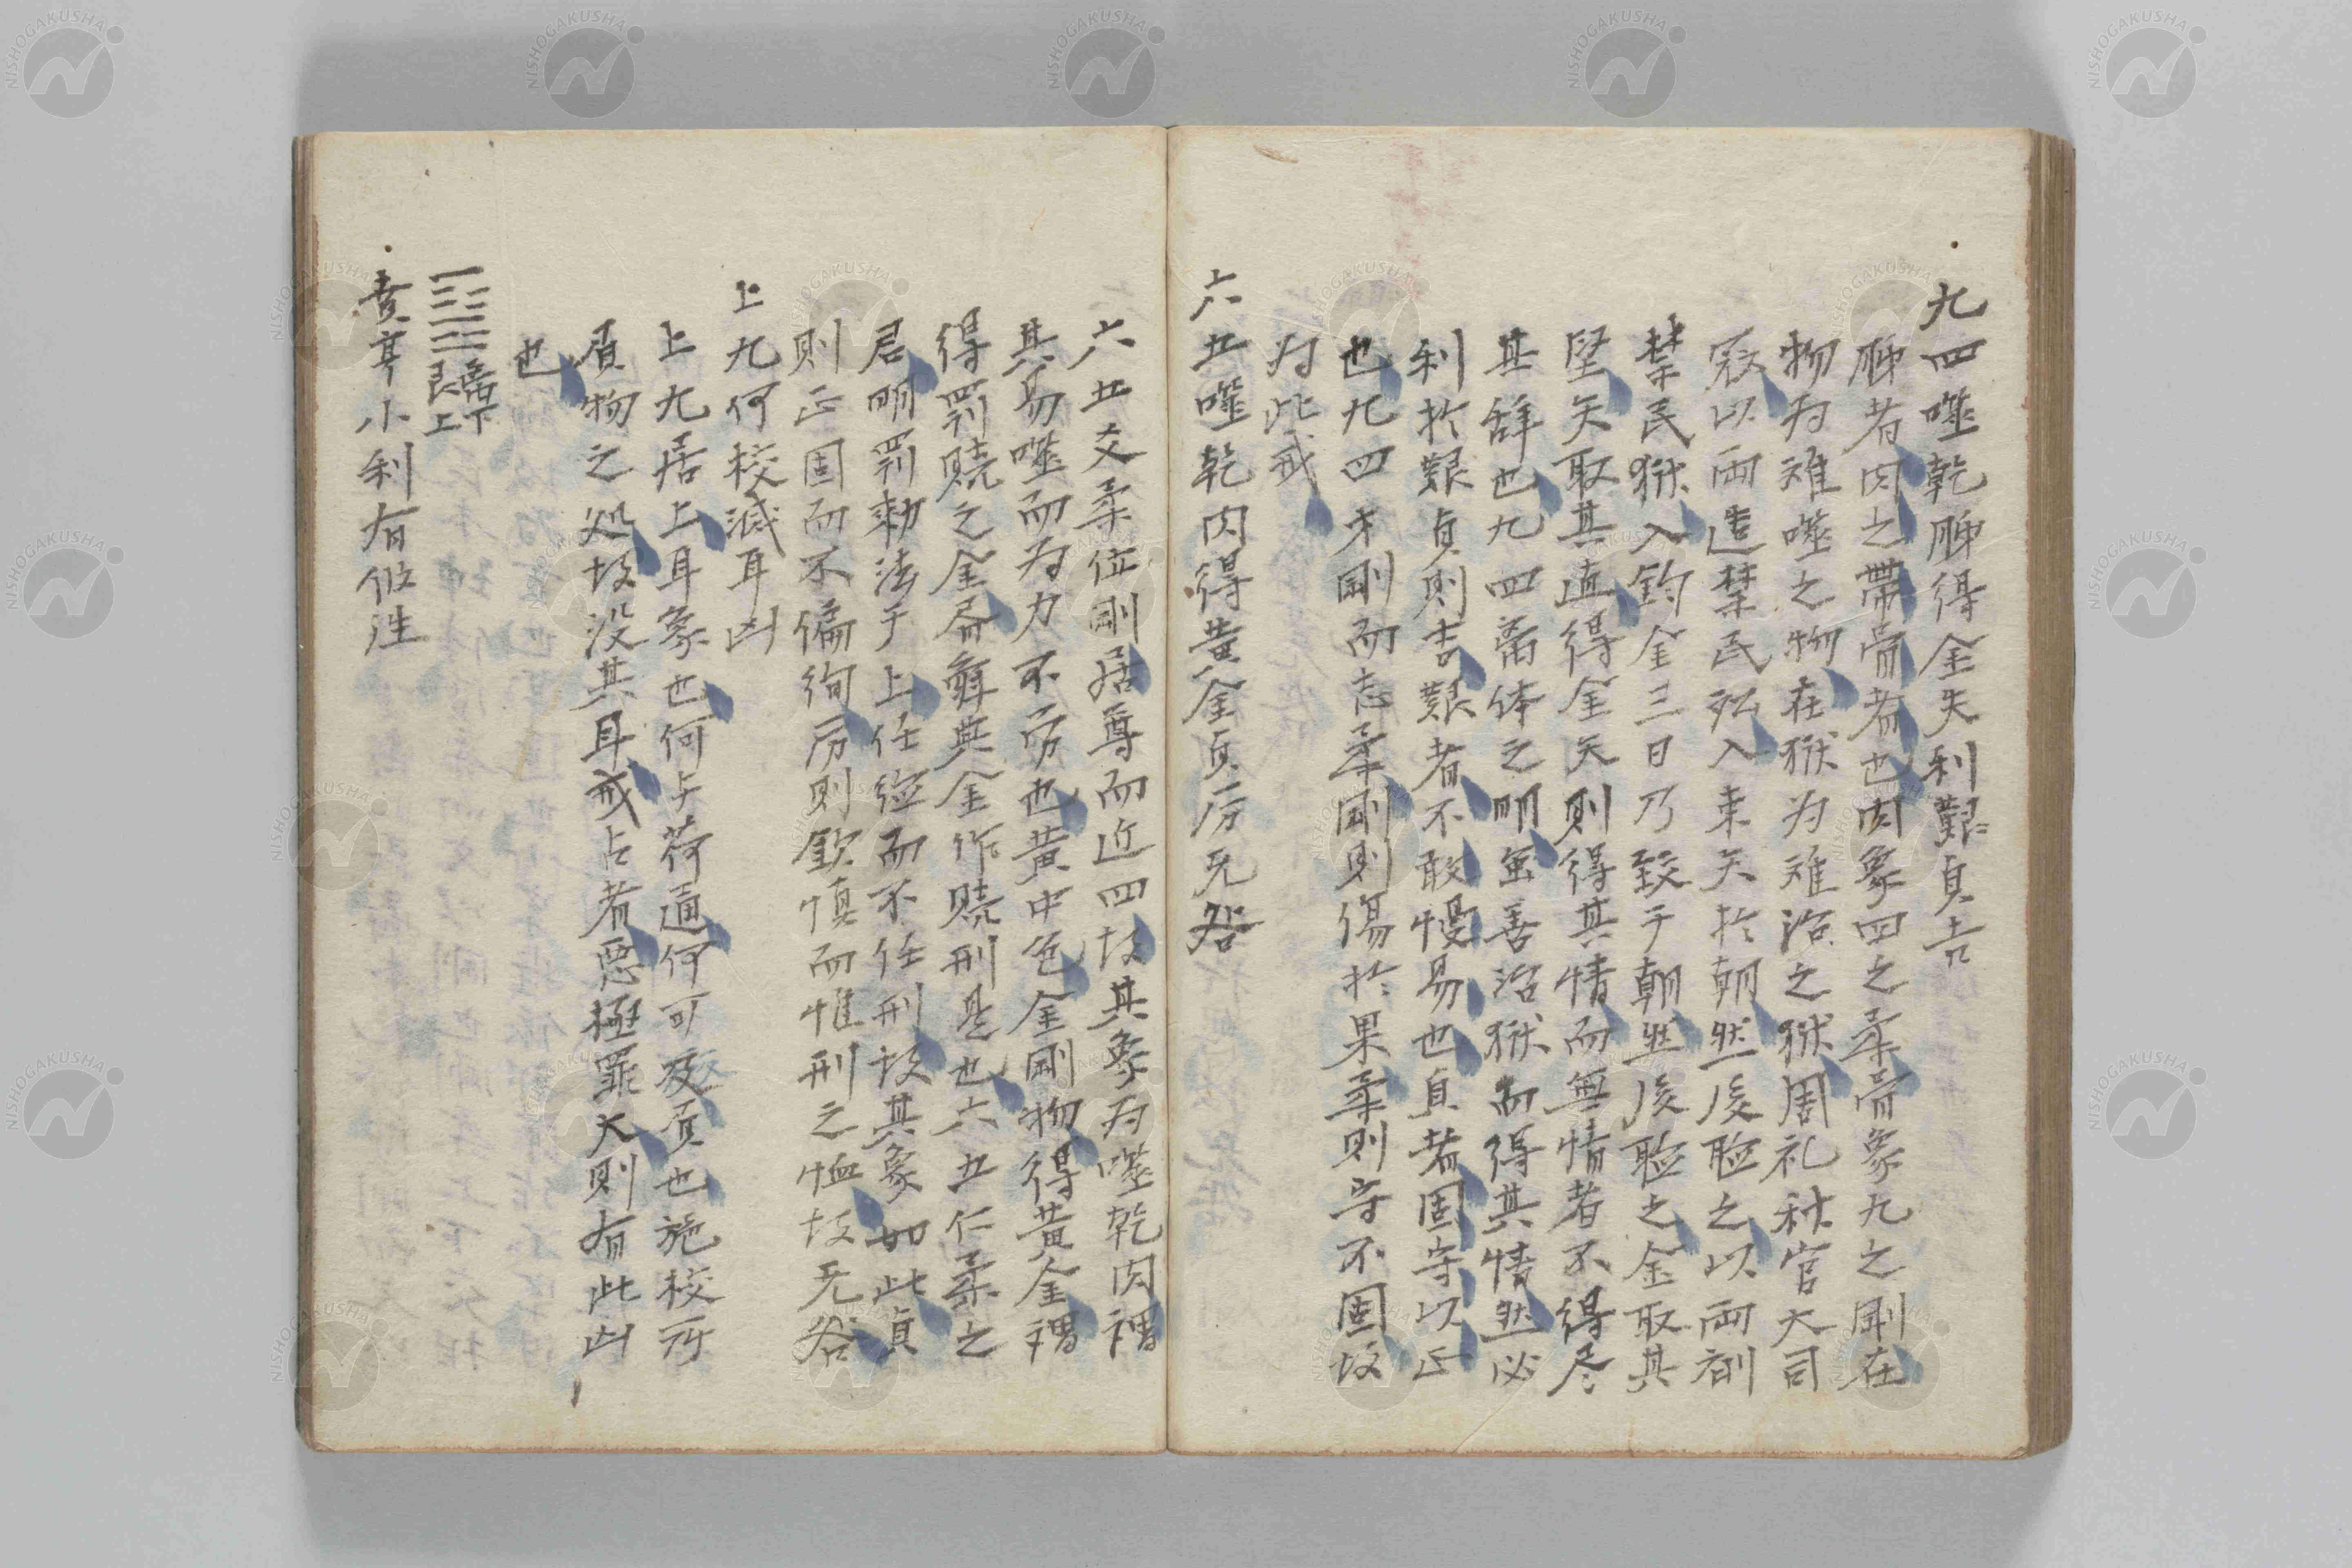 九四噬乾胏得金矢利艱貞吉
胏者肉之帶骨者也肉象四之柔骨象九之剛在
物为難噬之物在獄为難治之獄周礼秋官大司
寇以両造禁民訟入束矢於朝然後聴之以両剤
禁民獄入鈞金三日乃致于朝然後聴之金取其
堅矢取其直得金矢則得其情而無情者不得尽
其辞也九四离体之明虽善治獄而得其情然必
利於艱貞則吉艱者不敢慢易也貞者固守以正
也九四才剛而志柔剛則傷於果柔則守不固故
为此戒
六五噬乾肉得黄金貞厉无咎
六五爻柔位剛居尊而近四故其象为噬乾肉謂
其易噬而为力不労也黄中色金剛物得黄金謂
得罰贖之金爾舜典金作贖刑是也六五仁柔之
君明罰勅法于上任德而不任刑故其象如此貞
則正固而不偏徇厉則欽慎而惟刑之恤故无咎
上九何校滅耳凶
上九居上耳象也何与荷通何可 負也施校所
負物之処故没其耳戒占者惡極罪大則有此凶
也
䷕ 离下艮上
賁亨小利有攸往
NISHOGAKUSHA